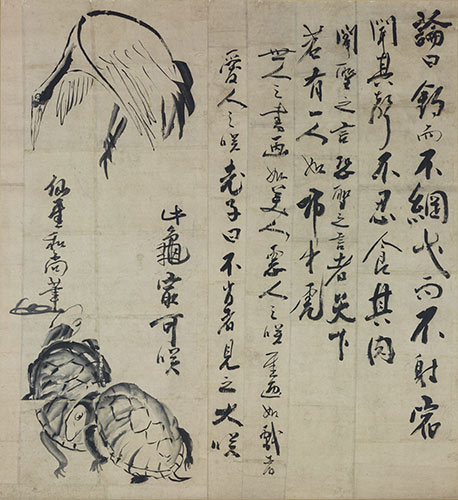 論曰釣而不綱弋而不射宿
聞其聲不忍食其肉
聞聖之言聖之言者
若有一人如市中虎
世人之書画如美人人之咲厓画如戯者
愛人之咲老子曰不肖者見之大咲
龜可咲
仙厓和尚筆